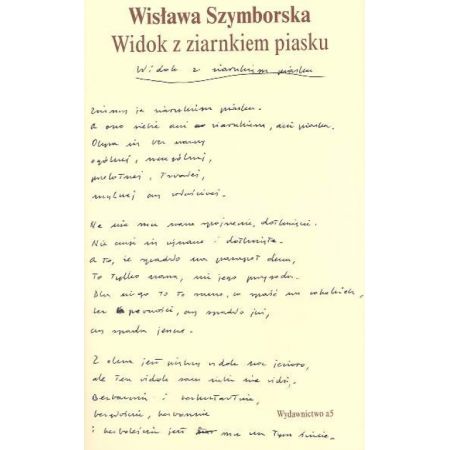 Wisława Szymborska
Widok z ziarnkiem piasku
Widok z ziarnkiem piasku
Zwiemy je ziarnkiem piasku.
A ono siebie ani ziarnkiem, ani piasku.
Obywa się bez nazwy
ogólnej, szczególnej,
przelotnej, trwałej,
mylnej czy właściwej.
Na nic mu nasze spojrzenie, dotknięcie.
Nie czuje się ujrzane i dotknięte.
A to, że spadło na parapet okna,
to tylko nasza, nie jego przygoda.
Dla niego to to samo, co spaść na cokolwiek,
bez pewności, czy spadło już,
czy spada jeszcze.
Z okna jest piękny widok na jezioro,
ale ten widok sam siebie nie widzi.
Bezbarwnie i bezkształtnie,
bezgłośnie, bezwonnie
Wydawnictwo a5
i bezboleśnie jest mu na tym świecie.